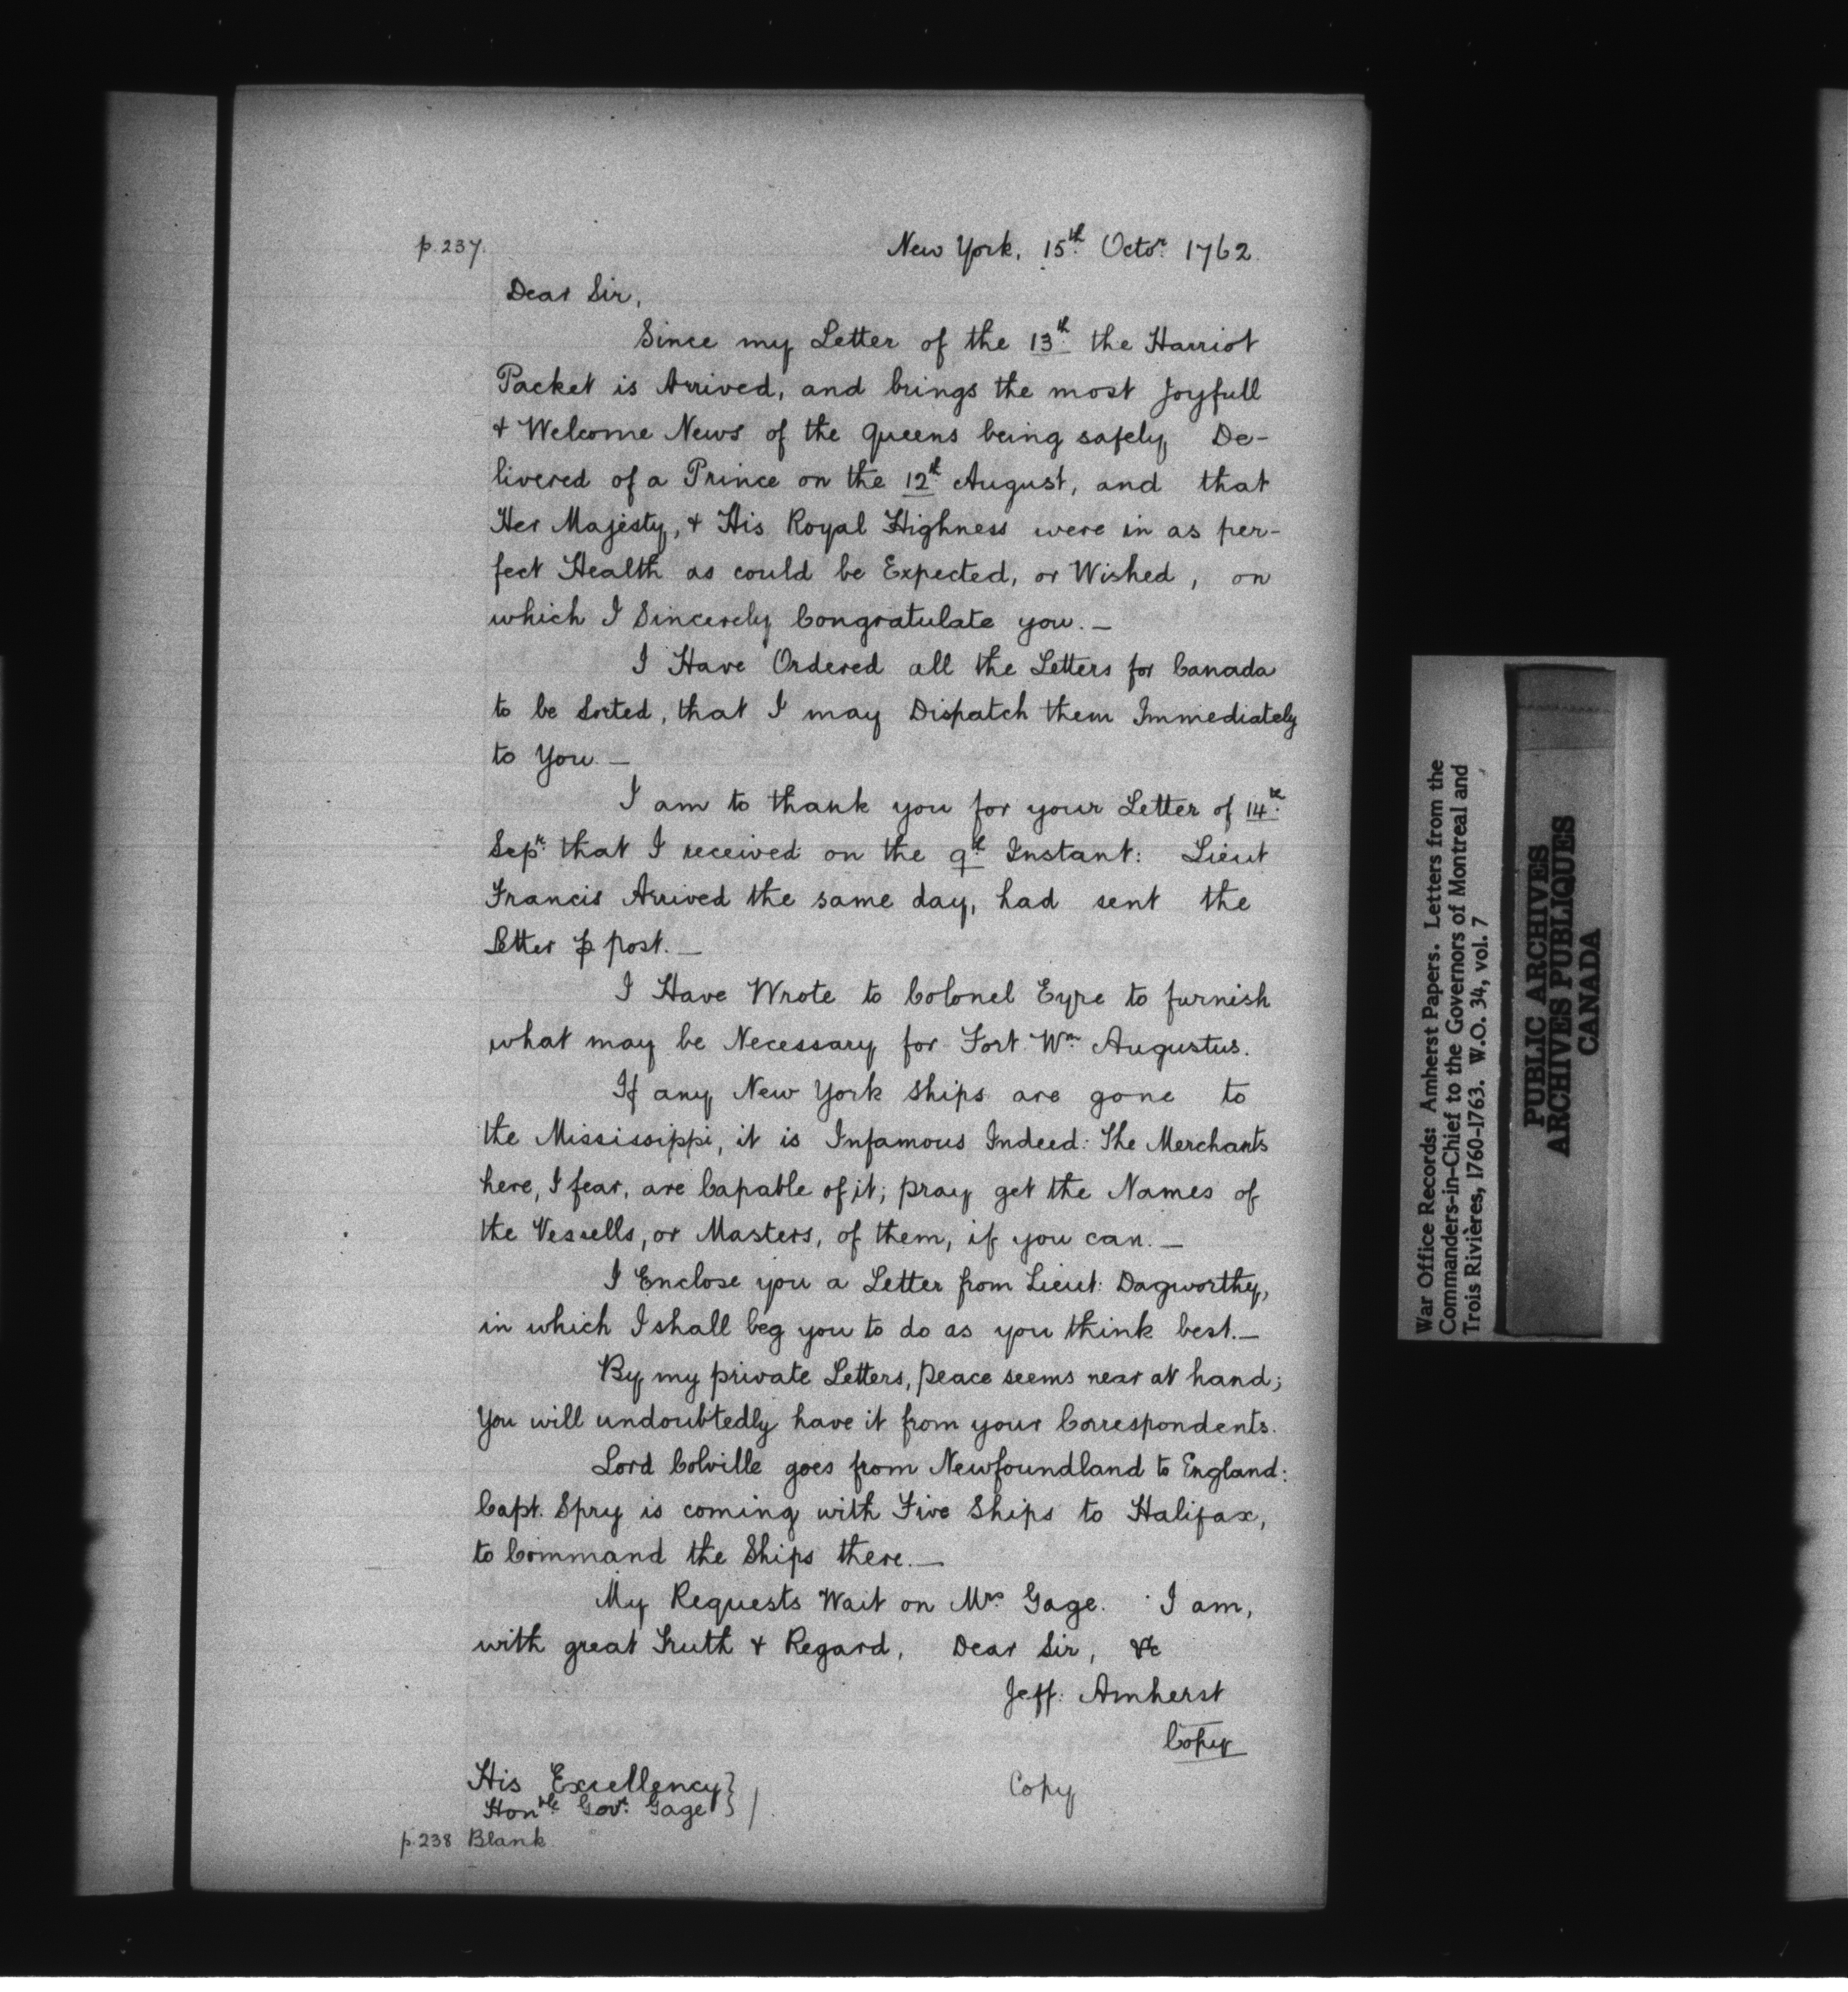 p. 237.
New York, 15th Octor 1762.
Dear Sir,
Since my Letter of the 13th the Harriot
Packet is Arrived, and brings the most Joyfull
& Welcome News of the Queens being safely De-
livered of a Prince on the 12th August, and that
Her Majesty, & His Royal Highness were in as per-
fect Health as could be Expected, or Wished, on
which I Sincerely Congratulate you. —
I Have Ordered all the Letters for Canada
to be Sorted, that I may Dispatch them Immediately
to You —
I am to thank you for your Letter of 14th
Sepr that I received on the 9th Instant: Lieut
Francis Arrived the same day, had sent the
Letter ⅌ post. —
I Have Wrote to Colonel Eyre to furnish
what may be Necessary for Fort Wm Augustus.
If any New York Ships are gone to
the Mississippi, it is Infamous Indeed: The Merchants
here, I fear, are Capable of it; pray get the Names of
the Vessells, or Masters, of them, if you can. —
I Enclose you a Letter from Lieut: Dagworthy,
in which I shall beg you to do as you think best. —
By my private Letters, peace seems near at hand;
You will undoubtedly have it from your Correspondents.
Lord Colville goes from Newfoundland to England:
Capt. Spry is coming with Five Ships to Halifax,
to Command the Ships there. —
My Requests Wait on Mrs Gage. I am,
with great Truth & Regard, Dear Sir, &c
Jeff: Amherst
Copy
His Excellency }
Honble Govr Gage } /.
Copy
p. 238 Blank
War Office Records: Amherst Papers. Letters from the
Commanders-in-Chief to the Governors of Montreal and
Trois Rivières, 1760-1763. W.O. 34, vol. 7
PUBLIC ARCHIVES
ARCHIVES PUBLIQUES
CANADA